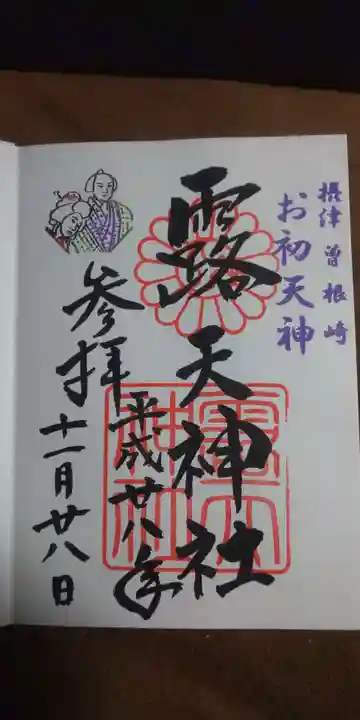 摂津 曽根崎
お初天神
露天神社
平成廿八年
参拝
十一月廿八日